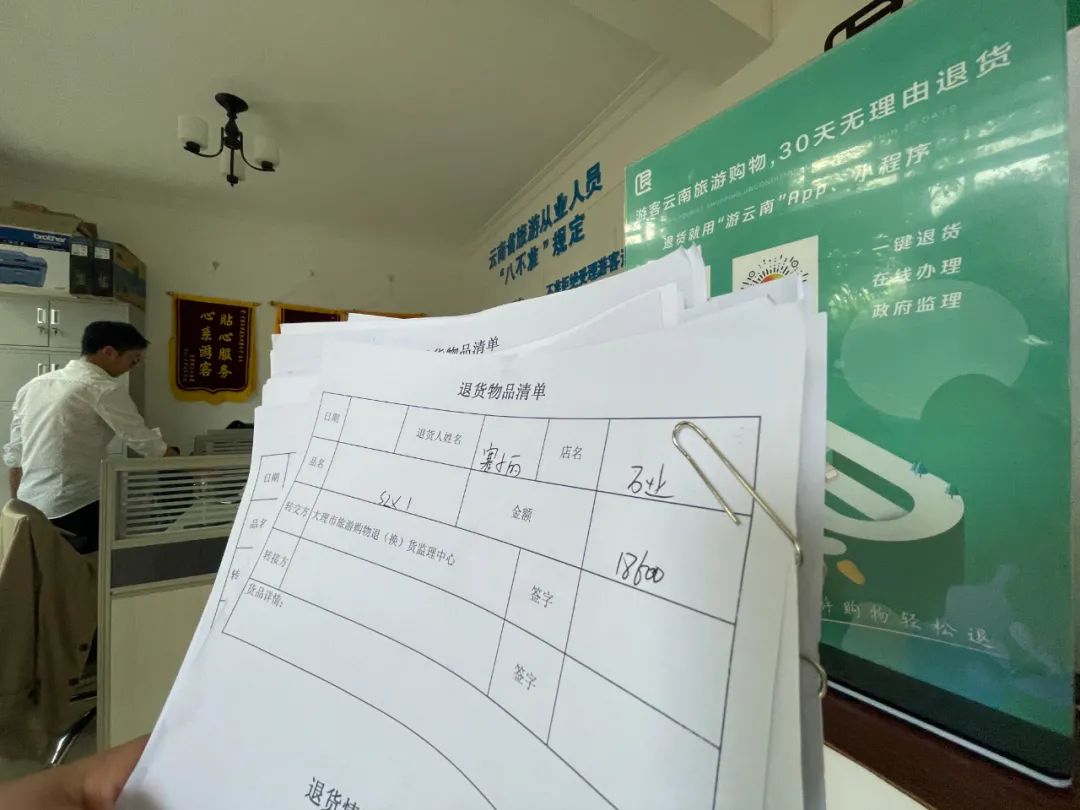 游客云南旅游购物,30天无理由退货
退货就用“游云南”App、小程序
一键退货
在线办理
政府监理
云南省旅游从业人员
“八不准”规定
brother
贴心服务
心系游客
物品清单
退货物品清单
日期
退货人姓名
店名
石业
品名
金额
18600
转交方
大理市旅游购物退（换）货监理中心
签字
转接方
签字
货品详情:
日期
品名
转
购物轻松退
退货